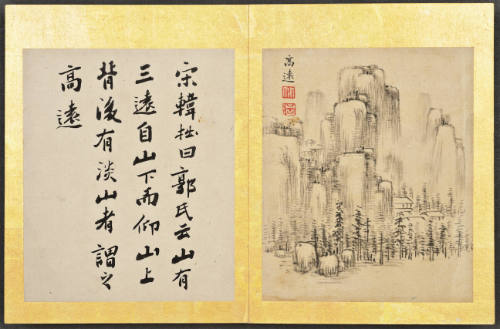 宋韓拙曰郭氏云山有
三遠自山下而仰山上
背後有淡山者謂之
高遠
高遠